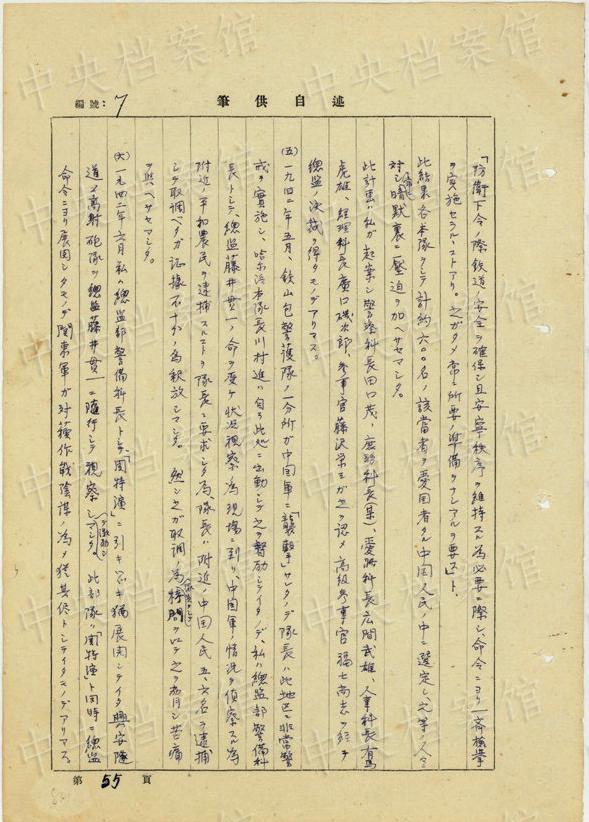 中央档案馆
編號：7
筆供自述
「防衛下令ノ際鉄道ノ安全ヲ確保シ且安寧秩序ヲ維持スル為必要ニ際シ、命令ニヨリ一斉検挙
ヲ実施セラルヽコトアリ。之ガタメ常ニ所要ノ準備ヲナシアルヲ要ス」ト、
此結果各本隊ニテ計約六〇〇名ノ該當者ヲ愛国者タル中国人民ノ中ニ選定シ、之等ノ人々ニ
対シ暗黙裏ニ圧迫ヲ加ヘサセマシタ。
此計畫ハ私ガ起案シ警務科長田口茂、庶務科長(某)、愛路科長広間武雄、人事科長有馬
虎雄、経理科長廣口磯次郎、参事官藤沢栄ミガ之ヲ認メ高級参事官福士尚志ヲ経テ
総監ノ決裁ヲ得タモノデアリマス。
(五)一九四二年五月、鉄山包警護隊ノ一分所ガ中国軍ニ「襲撃」サレタノデ隊長ハ此地区ニ非常警
戒ヲ実施シ、哈尔浜本隊長川村進ハ自ラ此処ニ出動シテ之ヲ督励シテイタノデ、私ハ總監部警備科
長トシテ、總監藤井貫一ノ命ヲ受ケ状況視察ノ為現場ニ到リ、中国軍ノ情況ヲ偵察スル為
附近ノ平和農民ヲ逮捕スルコトヲ隊長ニ要求シタ為、隊長ハ附近ノ中国人民五、六名ヲ逮捕
シテ取調ベタガ証據不十分ノ為釈放シマシタ。然シ之ガ取調ノ為拷問ヲ以テ之ヲ脅シ苦痛
ヲ與ヘサセマシタ。
(六)一九四二年六月私ハ總監部警備科長トシテ、「関特演」ニ引キ不キ猶展開シテイタ興安隧
道ノ高射砲隊ヲ總監藤井貫一ニ隨行シテ視察シマシタ。此部隊ハ「関特演」ト同時ニ總監
命令ニヨリ展開シタモノデ関東軍ガ対蘇作戦陰謀ノ為メ猶其侭トシテイタモノデアリマス
第 55 頁